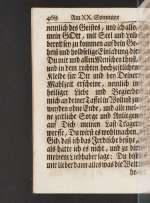 468 Am XX. Sonntage
nemlich des Geistes, und ich also,
mein GOtt, mit Seel und Leib
bereit sey zu kommen auf dein Ge-
heiß und holdselige Einladung so
Du mit und allen Menschen thust,
und in dem rechten hochzeitlichen
Kleide für Dir und bey Deiner
Mahlzeit erscheine, nemlich in
heiliger Liebe und Begierde
mich an deiner Tafel in Wollust zu
werden ohne Ende, und alle mei-
ne zeitliche Sorge und Anliegen
auf Dich meinen Last-Träger
werffe, Du wirst es wohl machen,
Gib, daß ich das Irrdische besitze,
als hätte ich es nicht, und zu Dir
meinem Liebhaber sage: Du bist
mir lieber dann alles was die Welt